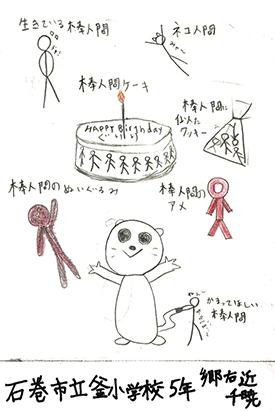 生きている棒人間
ネコ人間
みゃ〜
棒人間ケーキ
HAPPY Birthday
ぐり
棒人間に
似たた
クッキー
棒人間のぬいぐるみ
棒人間の
アメ
かまってほしい
棒人間
石巻市立釜小学校5年
郷右近
千暁